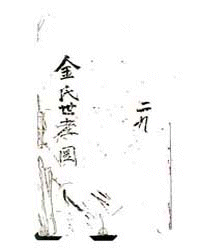 二九
金氏世孝圖